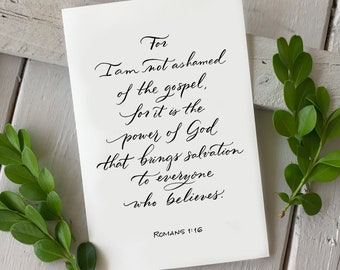 For
I am not ashamed
of the gospel,
for it is the
power of God
that brings salvation
to everyone
who believes.
ROMANS 1:16